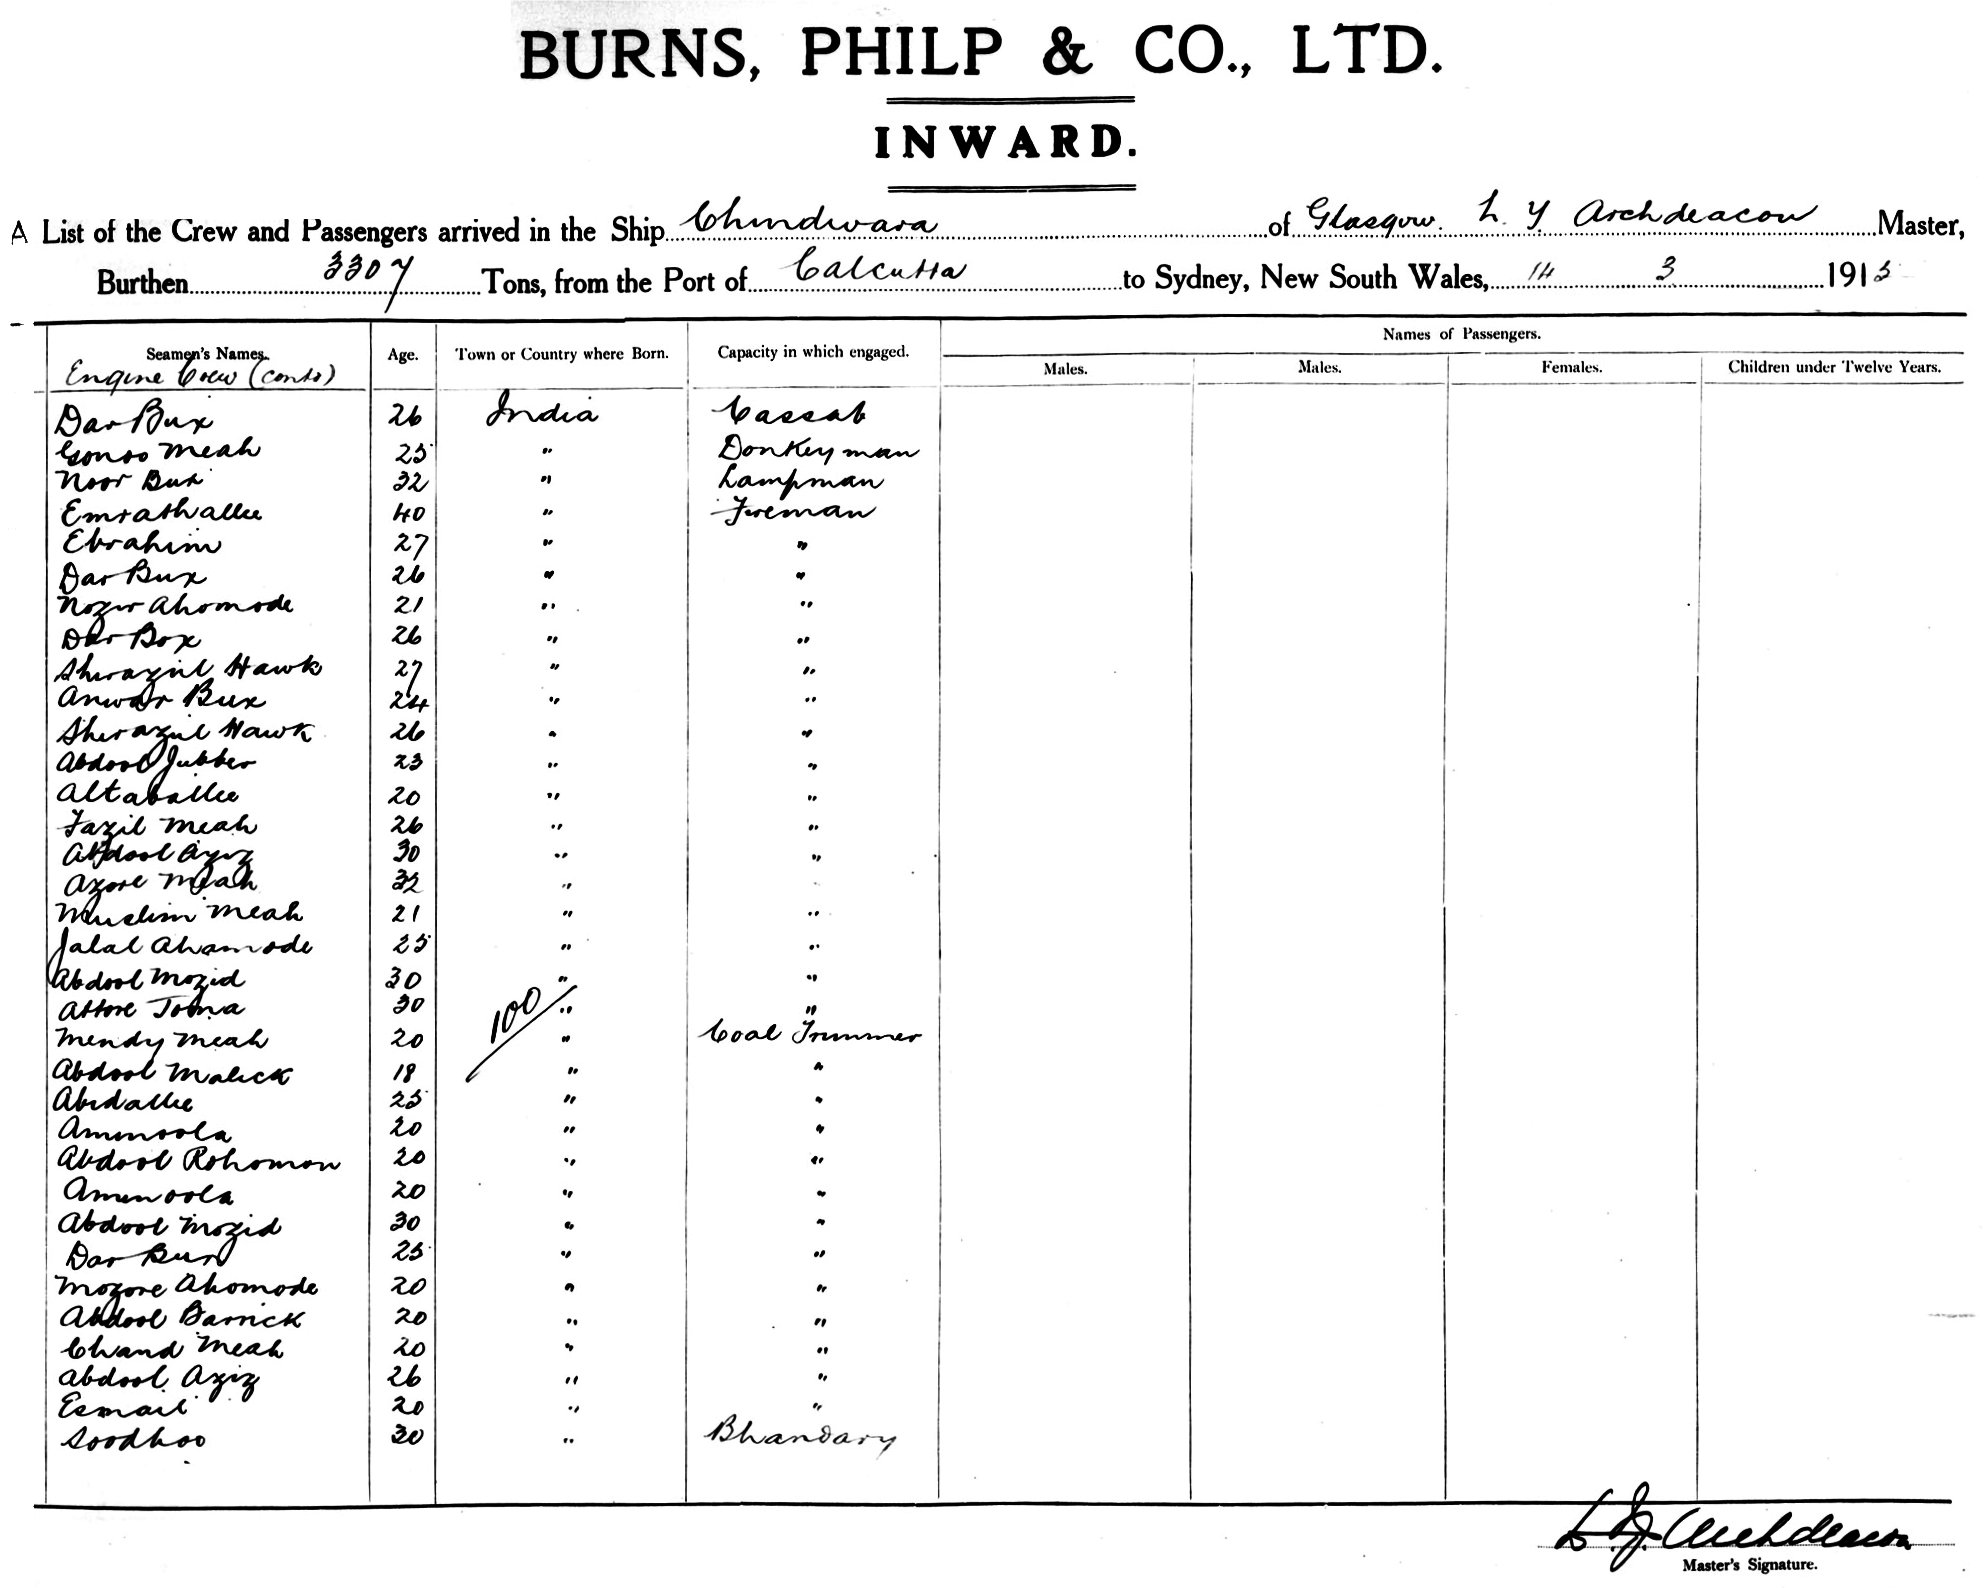 BURNS, PHILP & CO., LTD.
INWARD.
A List of the Crew and Passengers arrived in the Ship Chindwara of Glasgow. L. Y. Archdeacon Master,
Burthen 3307 Tons, from the Port of Calcutta to Sydney, New South Wales, 14 3 1915
Names of Passengers.
Seamen's Names. Age. Town or Country where Born. Capacity in which engaged. Males. Males. Females. Children under Twelve Years.
Engine Crew (contd)
Dar Bux 26 India Cassab
Gonoo Meah 25 " Donkeyman
Noor Bux 32 " Lampman
Emrathallee 40 " Fireman
Ebrahim 27 " "
Dar Bux 26 " "
Nozir Ahomode 21 " "
Dar Box 26 " "
Sherazul Hawk 27 " "
Anwar Bux 24 " "
Sherazul Hawk 26 " "
Abdool Jubber 23 " "
Altaballee 20 " "
Fazil Meah 26 " "
Abdool Aziz 30 " "
Azore Meah 32 " "
Muslim Meah 21 " "
Jalal Ahamode 25 " "
Abdool Mozid 30 " "
Attore Toma 30 " "
100
Mendy Meah 20 " Coal Trimmer
Abdool Malick 18 " "
Abidallee 25 " "
Amenoola 20 " "
Abdool Rohomon 20 " "
Amenoola 20 " "
Abdool Mozid 30 " "
Dar Bux 25 " "
Mozore Ahomode 20 " "
Abdool Barrick 20 " "
Chand Meah 20 " "
Abdool Aziz 26 " "
Esmail 20 " "
Soodhoo 30 " Bhandary
L. Y. Archdeacon
Master's Signature.